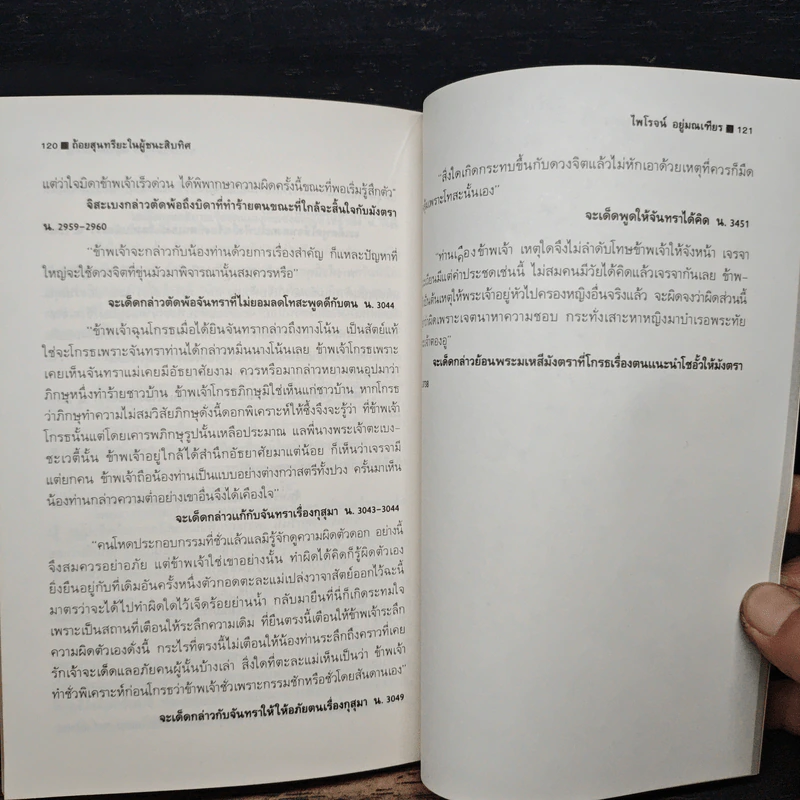 120 ■ ถ้อยสุนทรียะในผู้ชนะสิบทิศ
แต่ว่าใจบิดาข้าพเจ้าเร็วด่วน ได้พิพากษาความผิดครั้งนี้ขณะที่พอเริ่มรู้สึกตัว"
จิสะเบงกล่าวตัดพ้อถึงบิดาที่ทำร้ายตนขณะที่ใกล้จะสิ้นใจกับมังตรา
น. 2959-2960
"ข้าพเจ้าจะกล่าวกับน้องท่านด้วยการเรื่องสำคัญ ก็แหละปัญหาที่
ใหญ่จะใช้ดวงจิตที่ขุ่นมัวมาพิจารณานั้นสมควรหรือ"
จะเด็ดกล่าวตัดพ้อจันทราที่ไม่ยอมลดโทสะพูดดีกับตน น. 3044
"ข้าพเจ้าฉุนโกรธเมื่อได้ยินจันทรากล่าวถึงทางโน้น เป็นสัตย์แท้
ใช่จะโกรธเพราะจันทราท่านได้กล่าวหมิ่นนางโน้นเลย ข้าพเจ้าโกรธเพราะ
เคยเห็นจันทราแม่เคยมีอัธยาศัยงาม ควรหรือมากล่าวหยามตนอุปมาว่า
ภิกษุหนึ่งทำร้ายชาวบ้าน ข้าพเจ้าโกรธภิกษุมิใช่เห็นแก่ชาวบ้าน หากโกรธ
ว่าภิกษุทำความไม่สมวิสัยภิกษุดังนี้ดอกพิเคราะห์ให้ซึ้งจึงจะรู้ว่า ที่ข้าพเจ้า
โกรธนั้นแต่โดยเคารพภิกษุรูปนั้นเหลือประมาณ แลพี่นางพระเจ้าตะเบง-
ชะเวตี้นั้น ข้าพเจ้าอยู่ใกล้ได้สำนึกอัธยาศัยมาแต่น้อย ก็เห็นว่าเจรจามี
แต่ยกคน ข้าพเจ้าถือน้องท่านเป็นแบบอย่างต่างกว่าสตรีทั้งปวง ครั้นมาเห็น
น้องท่านกล่าวความต่ำอย่างเขาอื่นจึงได้เคืองใจ"
จะเด็ดกล่าวแก้กับจันทราเรื่องกุสุมา น. 3043-3044
"คนโหดประกอบกรรมที่ชั่วแล้วแลมิรู้จักดูความผิดตัวดอก อย่างนี้
จึงสมควรอย่าอภัย แต่ข้าพเจ้าใช่เขาอย่างนั้น ทำผิดได้คิดก็รู้ผิดตัวเอง
ยิ่งยืนอยู่กับที่เดิมอันครั้งหนึ่งตัวกอดตะละแม่เปล่งวาจาสัตย์ออกไว้ฉะนี้
มาตรว่าจะได้ไปทำผิดใดไว้เจ็ดร้อยย่านน้ำ กลับมายืนที่นี่ก็เกิดระทมใจ
เพราะเป็นสถานที่เตือนให้ระลึกความเดิม ที่ยืนตรงนี้เตือนให้ข้าพเจ้าระลึก
ความผิดตัวเองดังนี้ กระไรที่ตรงนี้ไม่เตือนให้น้องท่านระลึกถึงคราวที่เคย
รักเจ้าจะเด็ดแลอภัยคนผู้นั้นบ้างเล่า สิ่งใดที่ตะละแม่เห็นเป็นว่า ข้าพเจ้า
ทำชั่วพิเคราะห์ก่อนโกรธว่าข้าพเจ้าชั่วเพราะกรรมชักหรือชั่วโดยสันดานเอง"
จะเด็ดกล่าวกับจันทราให้ให้อภัยตนเรื่องกุสุมา น. 3049
ไพโรจน์ อยู่มณเฑียร ■ 121
"สิ่งใดเกิดกระทบขึ้นกับดวงจิตแล้วไม่หักเอาด้วยเหตุที่ควรก็มืด
เพราะโทสะนั้นเอง"
จะเด็ดพูดให้จันทราได้คิด น. 3451
"ท่านเคืองข้าพเจ้า เหตุใดจึงไม่ลำดับโทษข้าพเจ้าให้จังหน้า เจรจา
มีแต่คำประชดเช่นนี้ ไม่สมคนมีวัยได้คิดแล้วเจรจากันเลย ข้าพ-
เป็นต้นเหตุให้พระเจ้าอยู่หัวไปครองหญิงอื่นจริงแล้ว จะผิดจงว่าผิดส่วนนี้
ว่าผิดเพราะเจตนาหาความชอบ กระทั่งเสาะหาหญิงมาบำเรอพระทัย
เจ้าตองอู"
จะเด็ดกล่าวย้อนพระมเหสีมังตราที่โกรธเรื่องตนแนะนำโชอั้วให้มังตรา